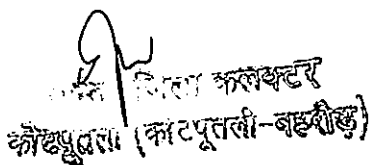 जिला कलक्टर
कोटपूतली (कोटपूतली-बहरोड़)